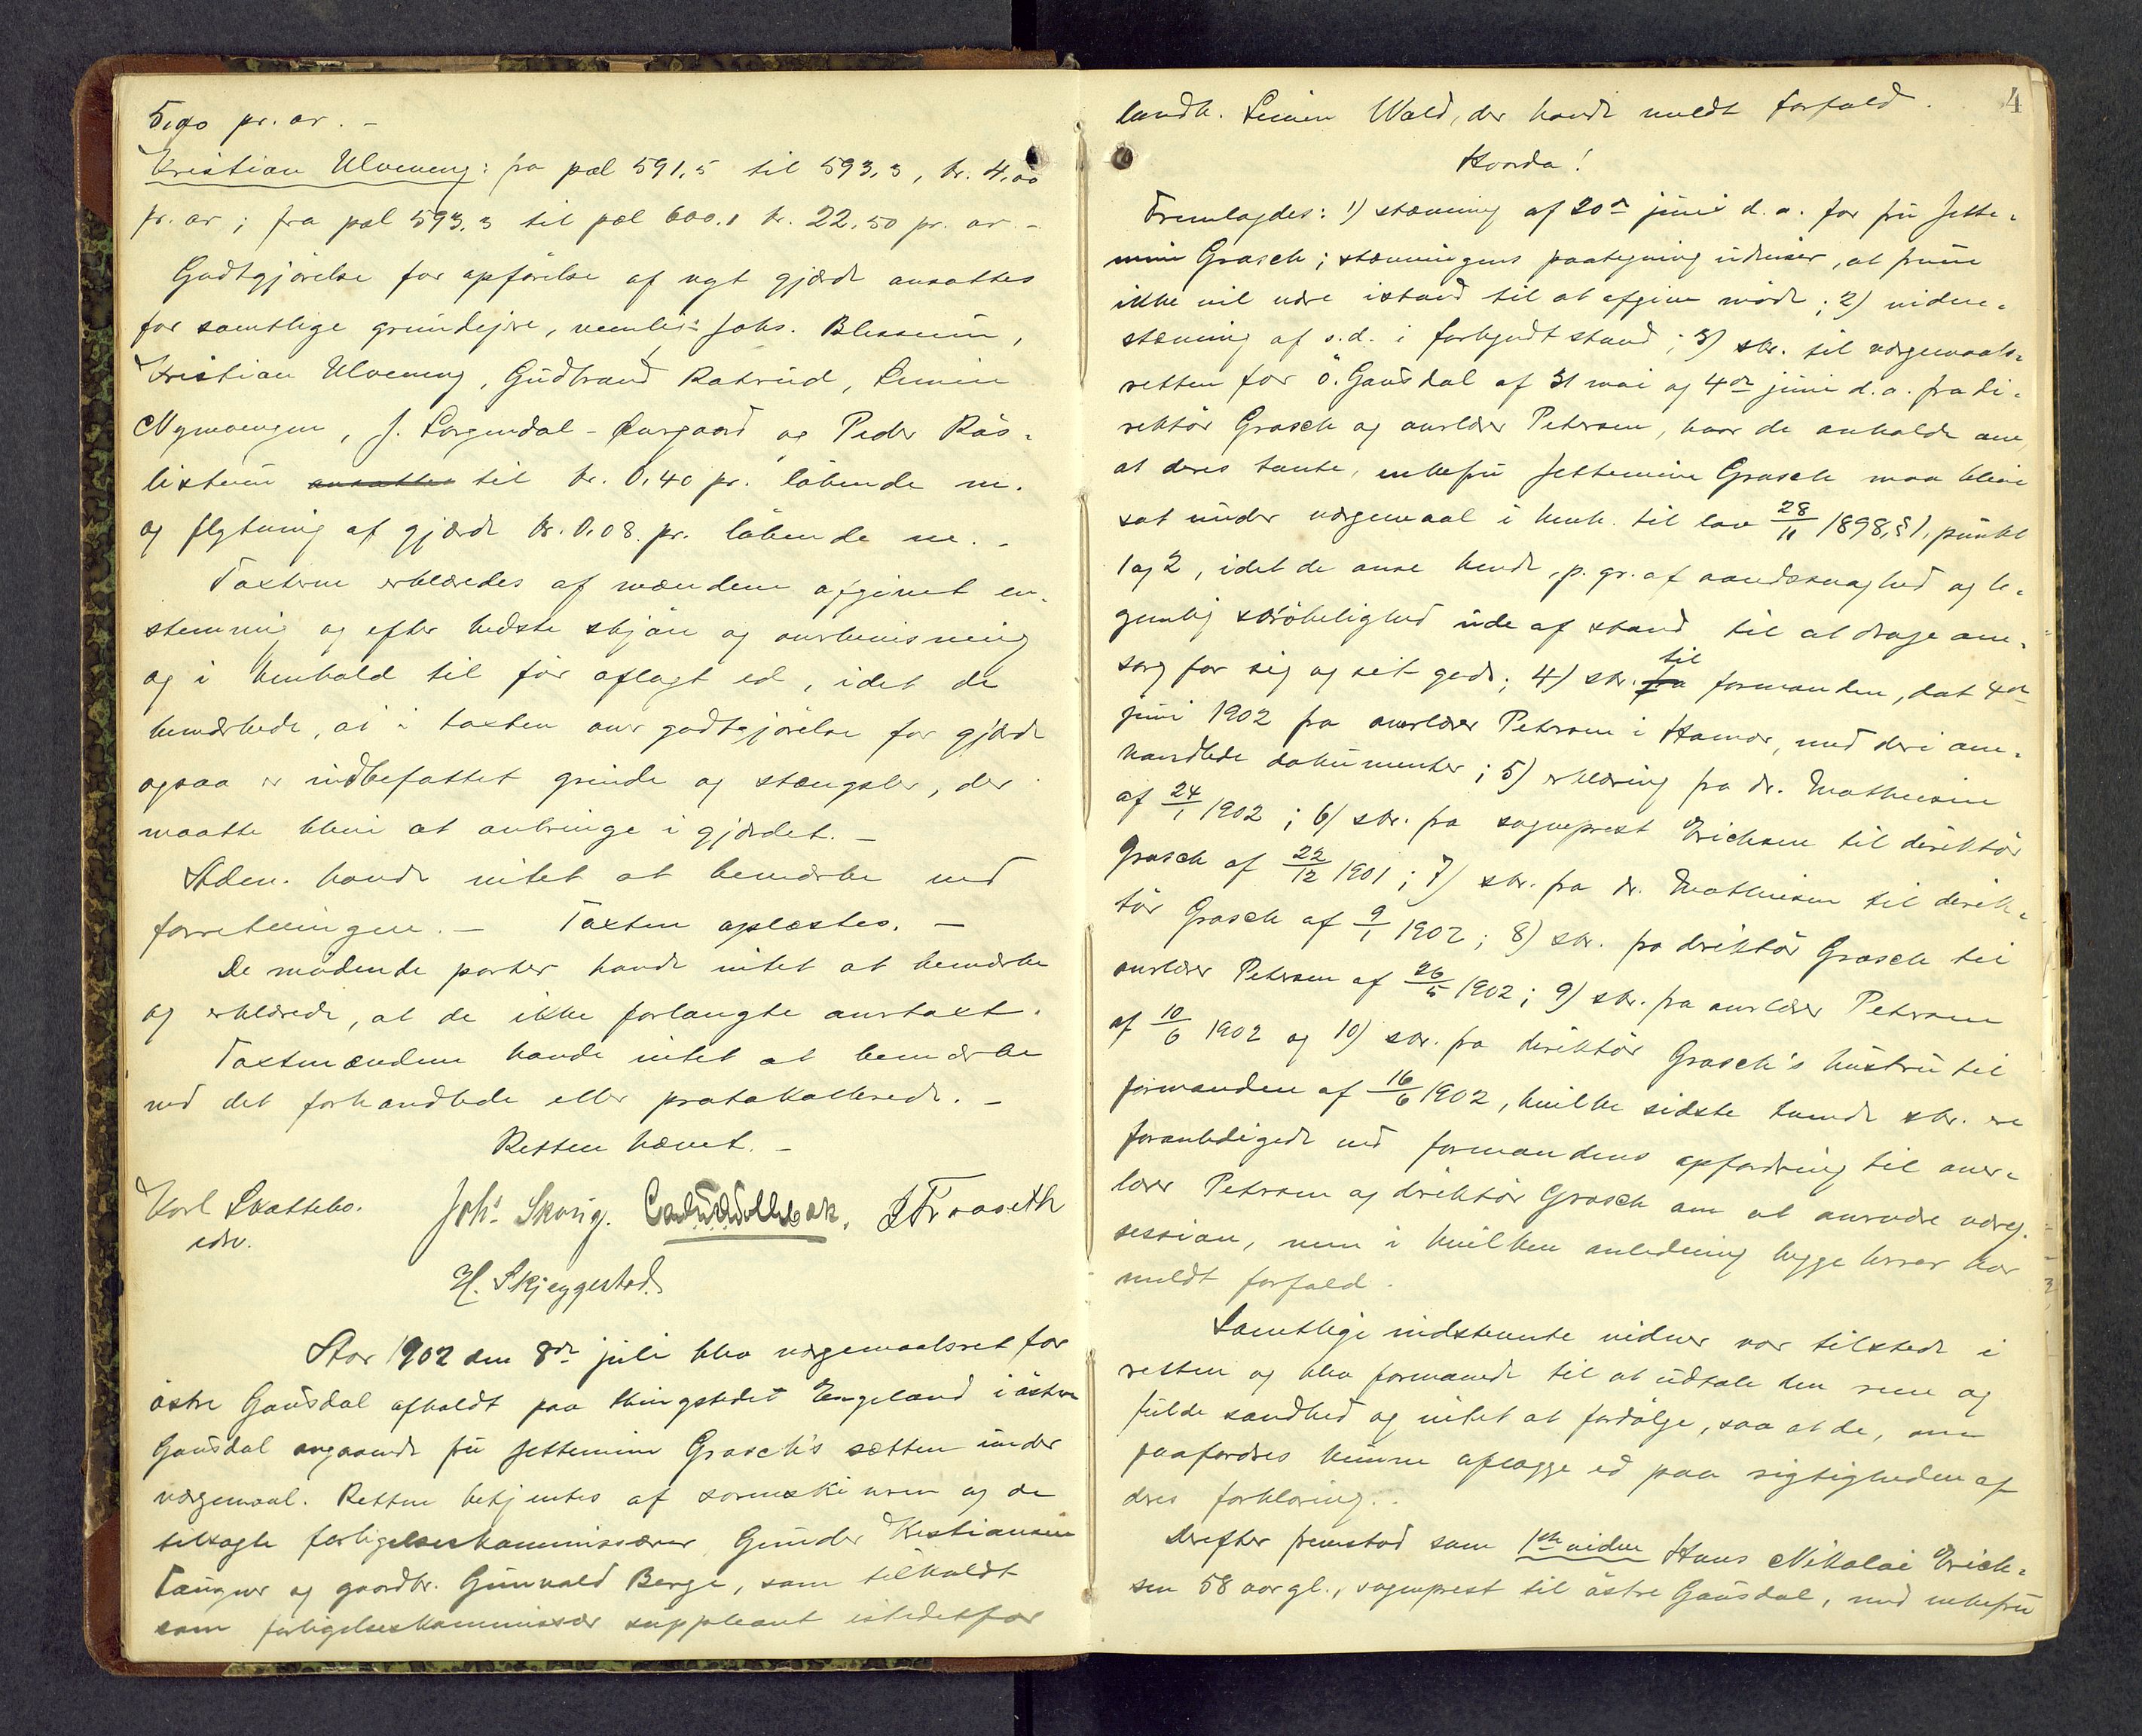 5,00 pr. ar. –
Kristian Ulveneng: fra pæl 591,5 til 593,3, kr. 4,00
pr. ar; fra pæl 593,3 til pæl 600.1 kr. 22,50 pr. ar –
Godtgjörelse for opförelse af nyt gjærde ansattes
for samtlige grundejere, nemlig: Johs. Blessum,
Kristian Ulveneng, Gudbrand Ratrud, Simen
Nymoengen, J. Lorgendal-Aurgaard og Peder Rös-
listuen ansattes til kr. 0,40 pr. löbende m.
og flytning af gjærde kr. 0.08. pr. löbende m. –
Taxterne erklæredes af mændene afgivet en-
stemmig og efter bedste skjön og overbevisning
og i henhold til för aflagt ed, idet de
bemærkede, at i taxten over godtgjörelse for gjærde
ogsaa er indbefattet grinde og stængsler, der
maatte blive at anbringe i gjærdet. –
Adm. havde intet at bemærke ved
forretningen. – Taxten oplæstes. –
De mödende parter havde intet at bemærke
og erklærede, at de ikke forlangte overtaxt.
Taxtmændene havde intet at bemærke
ved det forhandlede eller protokollerede. –
Retten hævet. –
Karl Skattebo. Johs. Skorig. J Fraaseth
edsv.
H. Skjeggestad.
Aar 1902 den 8de juli blev værgemaalsret for
östre Gausdal afholdt paa thingstedet Engeland i östre
Gausdal angaaende fru Jettemine Grosch's sætten under
værgemaal. Retten betjentes af sorenskriveren og de
tilsagte forligelseskommissærer, Gunder Kristiansen
Taugner og gaardbr. Gunvald Berge, som tilkaldt
som forligelseskommissær suppleant istedetfor
4
landh. Simen Wold, der havde meldt forfald.
Hvorda!
Fremlagdes: 1) stævning af 20de juni d.a. for fru Jette-
mine Grosch; stævningens paategning udviser, at fruen
ikke vil være istand til at afgive möde; 2) vidne-
stævning af s.d. i forkyndt stand; 3) skr. til værgemaals-
retten for Ö. Gausdal af 31 mai og 4de juni d.a. fra di-
rektör Grosch og overlærer Petersen, hvor de anholde om,
at deres tante, enkefru Jettemine Grosch maa blive
sat under værgemaal i henh. til lov 28/11 1898, § 1, punkt
1 og 2, idet de anse hende, p. gr. af aandssvaghed og le-
gemlig skröbelighed ude af stand til at drage om-
sorg for sig og sit gods; 4) skr. fra til formanden, dat 4de
juni 1902 fra overlærer Petersen i Hamar, med deri om-
handlede dokumenter; 5) erklæring fra dr. Mathiesen
af 24/1 1902; 6) skr. fra sogneprest Erichsen til direktör
Grosch af 22/12 1901; 7) skr. fra dr. Mathiesen til direk-
tör Grosch af 9/1 1902; 8) skr. fra direktör Grosch til
overlærer Petersen af 26/5 1902; 9) skr. fra overlærer Petersen
af 10/6 1902 og 10) skr. fra direktör Grosch's hustru til
formanden af 16/6 1902, hvilke sidste tvende skr. ere
foranledigede ved formandens opfordring til over-
lærer Petersen og direktör Grosch om at overvære værg.
session, men i hvilken anledning begge herrer har
meldt forfald.
Samtlige indstevnte vidner var tilstede i
retten og blev formanede til at udtale den rene og
fulde sandhed og intet at fordölge, saa at de, om
paafordres kunne aflægge ed paa rigtigheden af
deres forklaring.
Derefter fremstod som 1ste vidne Hans Nikolai Erich-
sen 58 aar gl., sogneprest til östre Gausdal, med enkefru